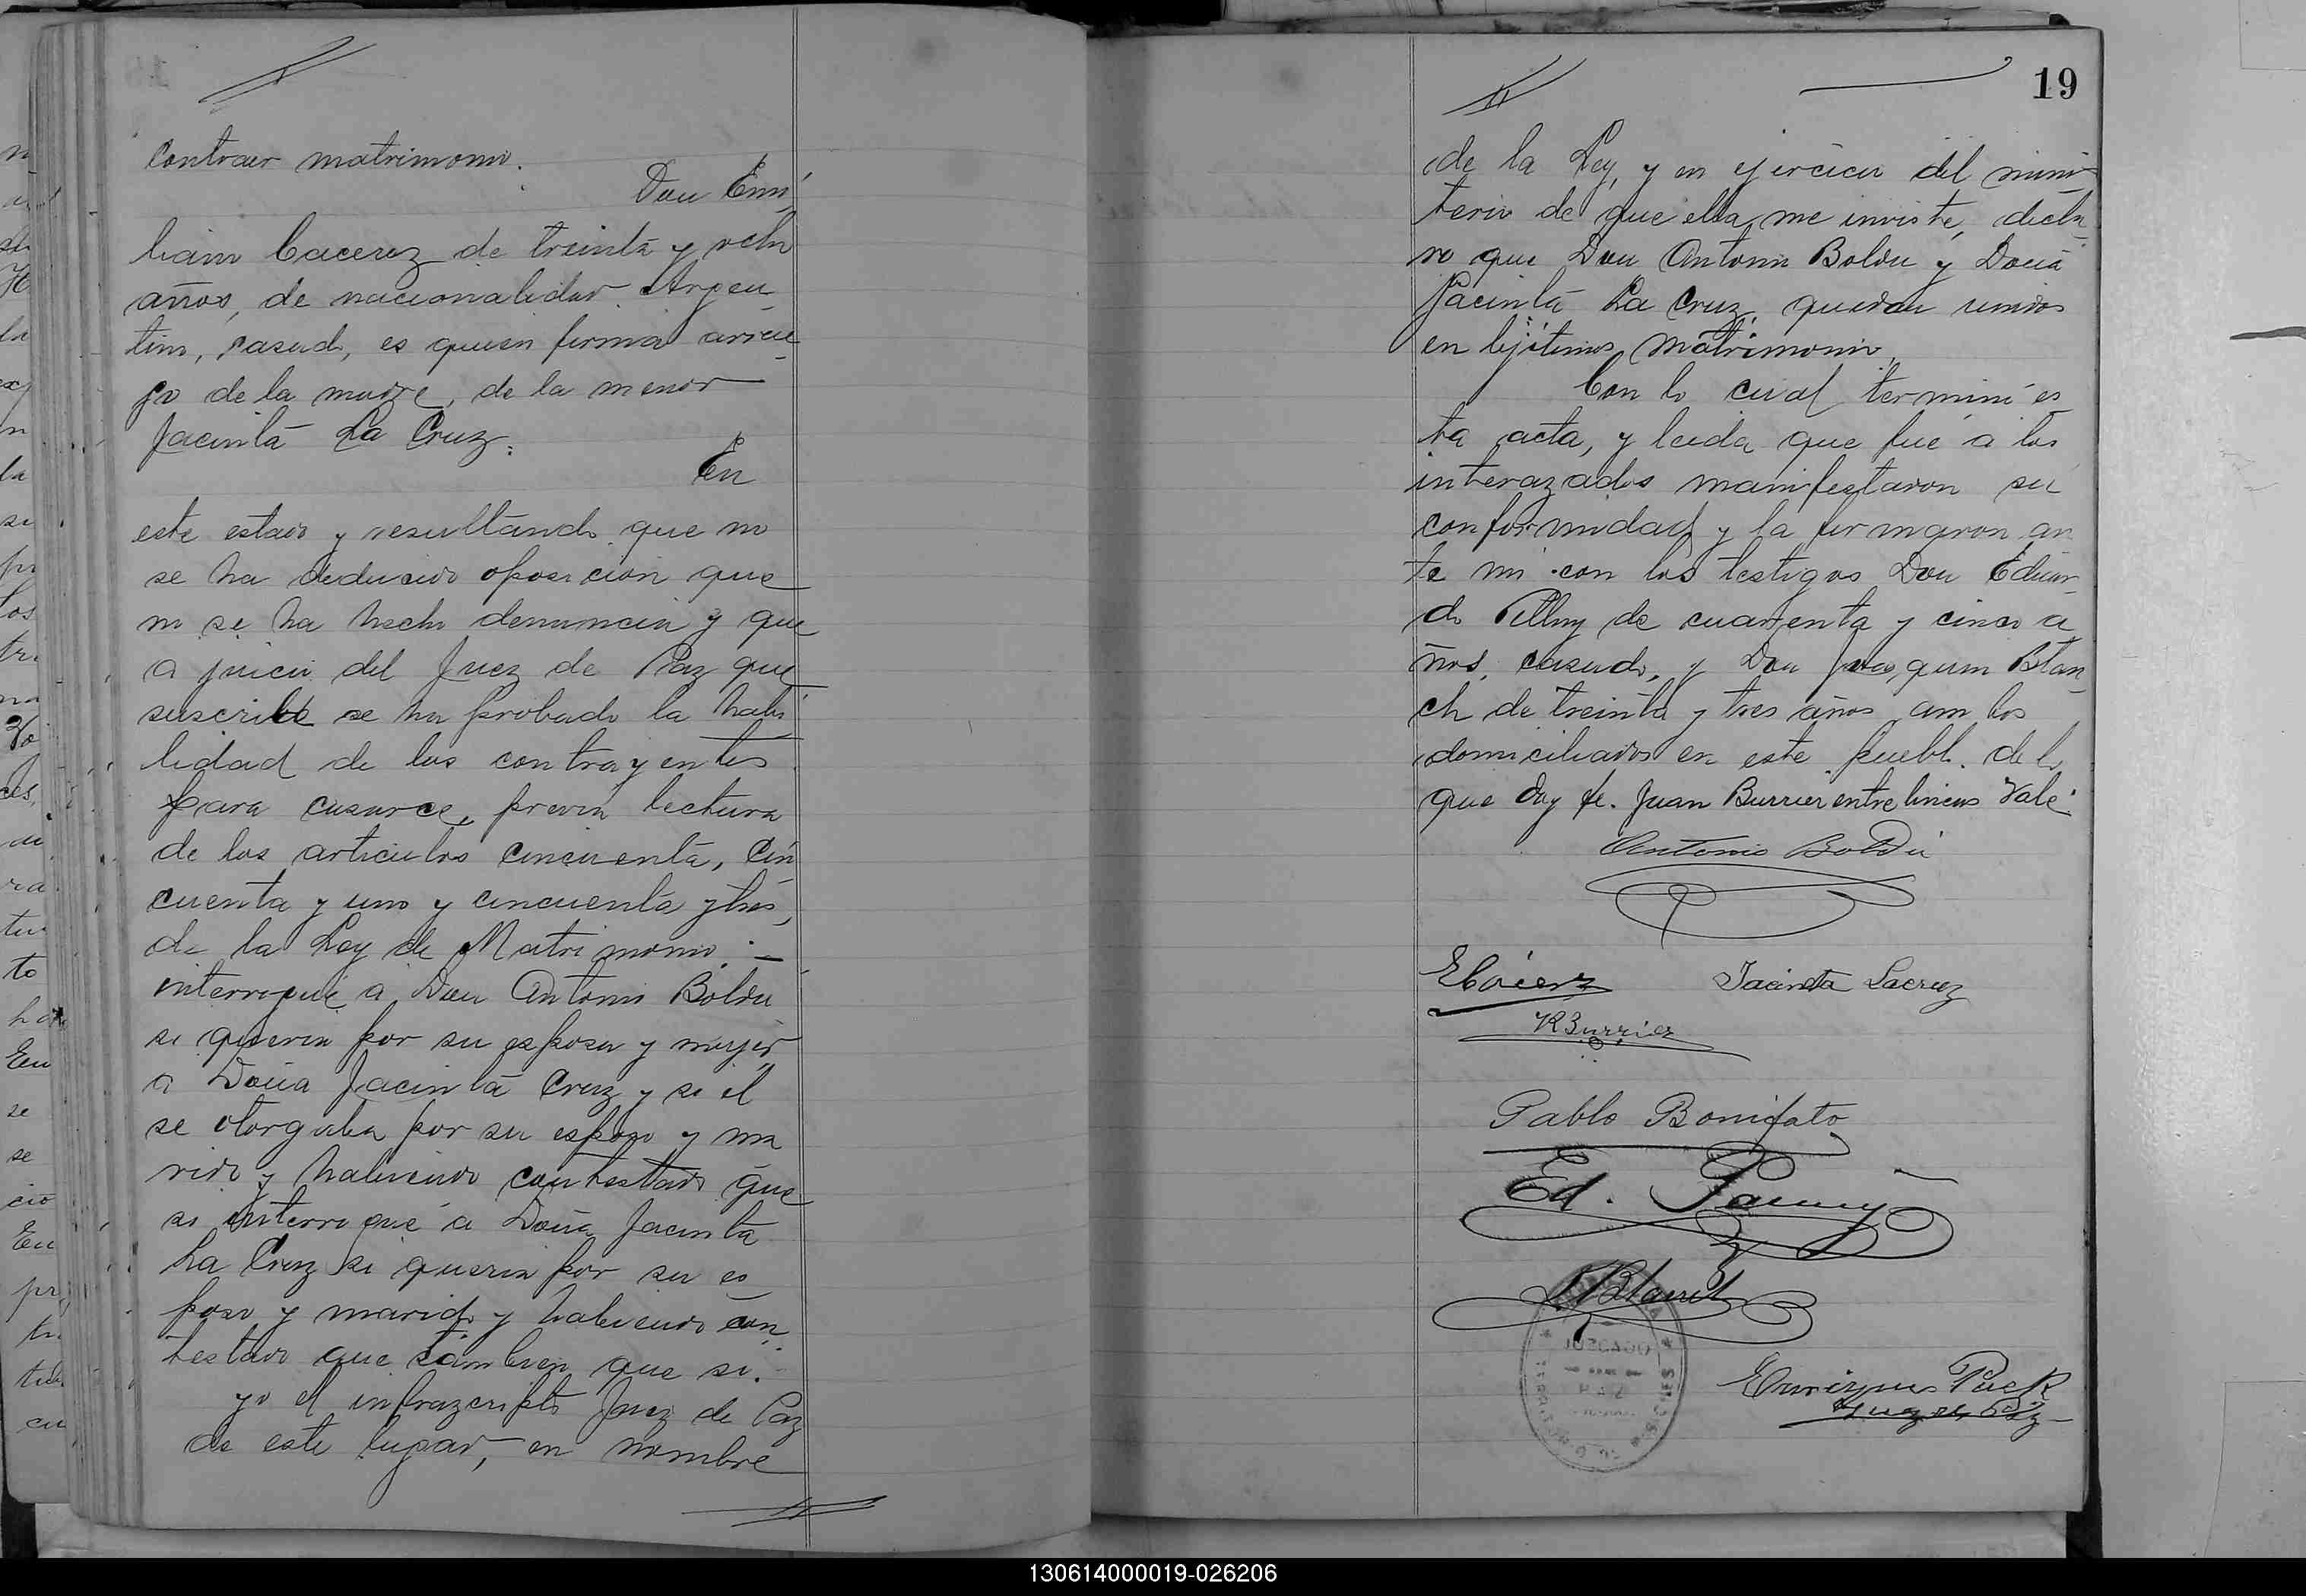 contraer matrimonio.
Don Emi
liano Cacerez de treinta y ocho
años, de nacionalidad Argen
tino, casado, es quien firma arrue
go de la madre, de la menor
Jacinta La Cruz.
En
este estado y resultando que no
se ha deducido oposicion que
no se ha hecho denuncia y que
a juicio del Juez de Paz que
suscribe se ha probado la habi
lidad de los contrayentes
para casarce, previa lectura
de los articulos cincuenta, cin
cuenta y uno y cincuenta y tres,
de la Ley de Matrimonio. —
interrogué a Don Antonio Boldu
si queria por su esposa y mujer
a Doña Jacinta Cruz y si el
se otorgaba por su esposo y ma
rido y habiendo contestado que
si interrogué a Doña Jacinta
La Cruz si queria por su es
poso y marido y habiendo con
testado que tambien que si.
yo el infrazcripto Juez de Paz
de este lugar, en nombre
19
de la Ley, y en ejercicio del minis
terio de que ella me inviste, decla
ro que Don Antonio Boldu y Doña
Jacinta La Cruz, quedan unidos
en lejitimo matrimonio.
Con lo cual terminé es
ta acta, y leida que fué a los
interazados manifestaron su
conformidad y la firmaron an
te mi con los testigos Don Eduar
do de cuarenta y cinco a
ños, casado, y Don Joaquin Blan
ch de treinta y tres años ambos
domiciliados en este pueblo de lo
que doy fe. Juan Burrier entre lineas Vale
Antonio Boldú
ECácerz Jacinta Lacruz
Burrier
Pablo Bonifato
Ed.
Blanch
Enrique Puck
Juez de Paz
JUZGADO
PAZ
130614000019-026206